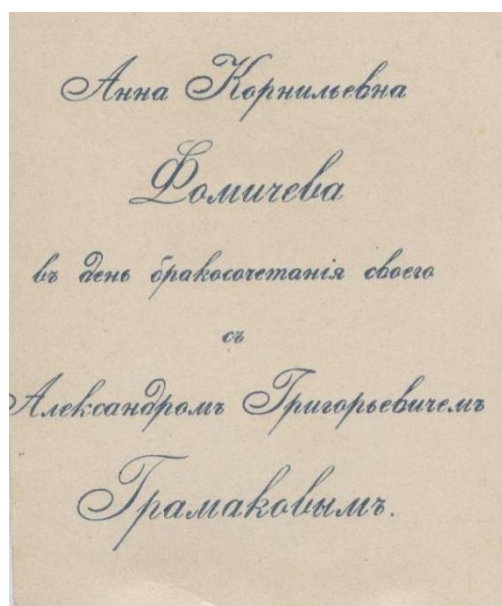 Анна Корнильевна
Фомичева
въ день бракосочетанія своего
съ
Александромъ Григорьевичемъ
Грамаковымъ.